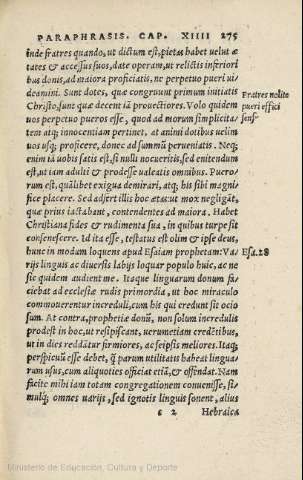 PARAPHRASIS. CAP. XIIII 275
inde fratres quando, ut dictum est, pietas habet uelut æ
tates & accessus suos, date operam, ut relictis inferiori
bus donis, ad maiora proficiatis, ne perpetuo pueri ui
deamini. Sunt dotes, quæ congruunt primum initiatis
Christo, sunt quæ decent iā prouectiores. Volo quidem
uos perpetuo pueros esse, quod ad morum simplicita-
tem atq; innocentiam pertinet, at animi dotibus uelim
uos usq; proficere, donec ad summū perueniatis. Neq;
enim iā uobis satis est, si nulli nocueritis, sed enitendum
est, ut iam adulti & prodesse ualeatis omnibus. Puero/
rum est, quālibet exigua demirari, atq; his sibi magni-
fice placere. Sed adsert illis hoc ætas: ut mox negligāt,
quæ prius iactabant, contendentes ad maiora. Habet
Christiana fides & rudimenta sua, in quibus turpe sit
consenescere. Id ita esse, testatus est olim & ipse deus,
hunc in modum loquens apud Esaiam prophetam: Va/
rijs linguis ac diuersis labijs loquar populo huic, ac ne
sic quidem audient me. Itaque linguarum donum fa/
ciebat ad ecclesiæ rudis primordia, ut hoc miraculo
commouerentur increduli, cum his qui credunt sit ocio
sum. At contra, prophetiæ donū, non solum incredulis
prodest in hoc, ut resipiscant, uerumetiam credētibus,
ut in dies reddātur firmiores, ac seipsis meliores. Itaq;
perspicuū esse debet, q̄ parum utilitatis habeat lingua/
rum usus, cum aliquoties officiat etiā, & offendat. Nam
fingite mihi iam totam congregationem conuenisse, si/
mulq; omnes uarijs, sed ignotis linguis sonent, alius
s 2 Hebraica
Fratres nolite
pueri effici
sens
Esa.28
Ministerio de Educación, Cultura y Deporte